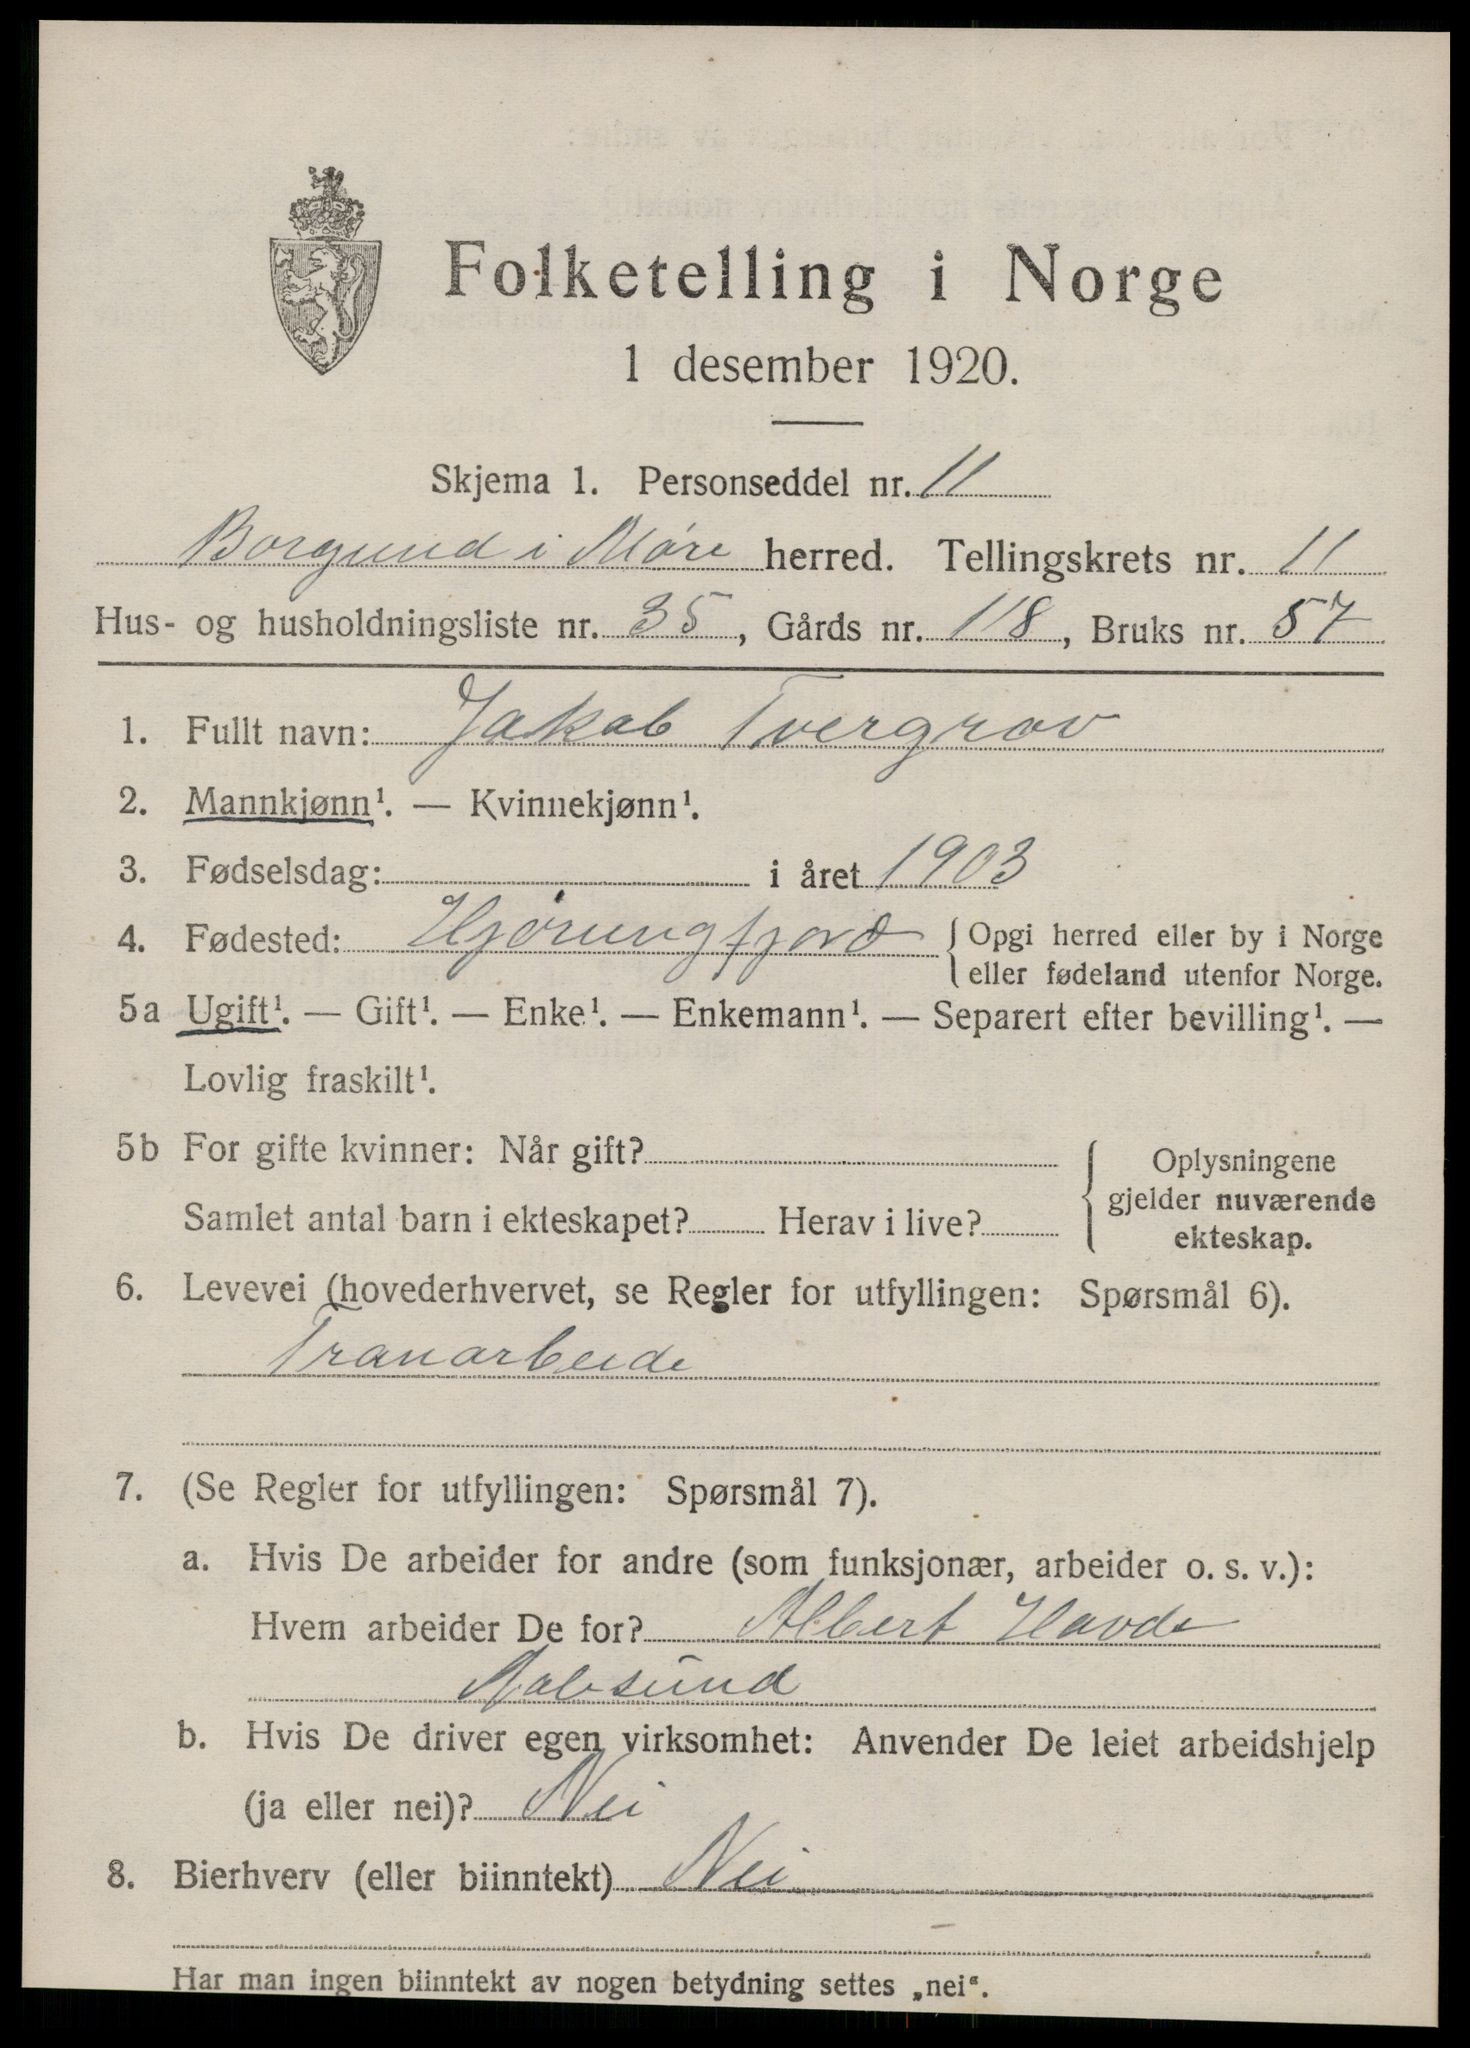 Folketelling i Norge
1 desember 1920.
Skjema 1. Personseddel nr. 11
Borgund i Møre herred. Tellingskrets nr. 11
Hus- og husholdningsliste nr. 35, Gårds nr. 118, Bruks nr. 57
1. Fullt navn: Jakob Tvergrov
2. Mannkjønn¹. — Kvinnekjønn¹.
3. Fødselsdag: i året 1903
4. Fødested: Hjørungfjord { Opgi herred eller by i Norge
eller fødeland utenfor Norge.
5a Ugift¹. — Gift¹. — Enke¹. — Enkemann¹. — Separert efter bevilling¹. —
Lovlig fraskilt¹.
5b For gifte kvinner: Når gift? { Oplysningene
gjelder nuværende
Samlet antal barn i ekteskapet? Herav i live?
ekteskap.
6. Levevei (hovederhvervet, se Regler for utfyllingen: Spørsmål 6).
Tranarbeide
7. (Se Regler for utfyllingen: Spørsmål 7).
a. Hvis De arbeider for andre (som funksjonær, arbeider o. s. v.):
Hvem arbeider De for? Albert Havde
Aalesund
b. Hvis De driver egen virksomhet: Anvender De leiet arbeidshjelp
(ja eller nei)? Nei
8. Bierhverv (eller biinntekt) Nei
Har man ingen biinntekt av nogen betydning settes „nei“.